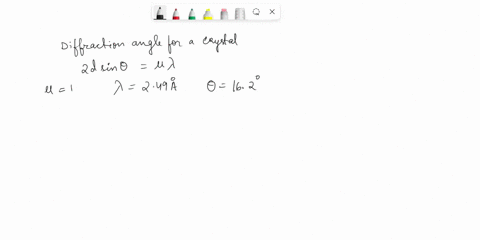 Diffraction angle for a crystal
2d sinθ = nλ
n = 1 λ = 2.49 Å θ = 16.2°